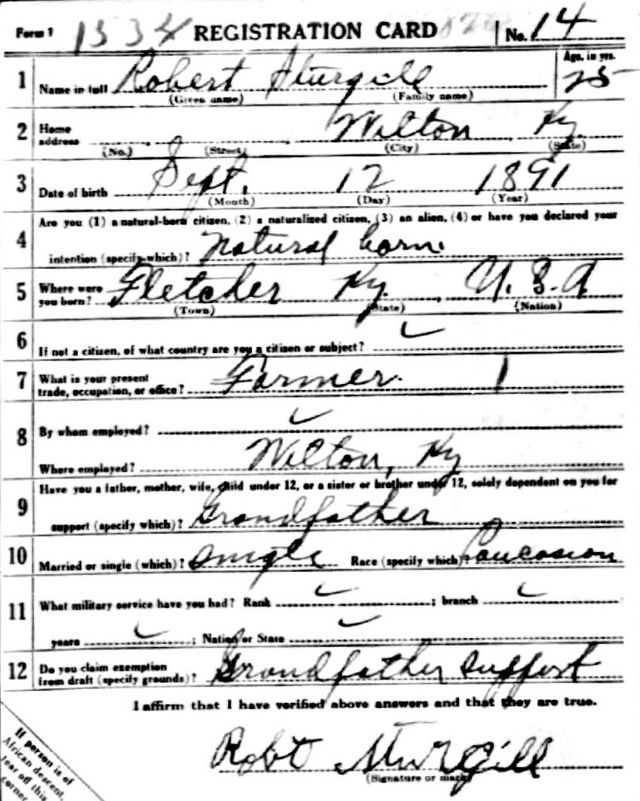 Form 1 1534 REGISTRATION CARD No. 14
1 Name in full Robert Sturgill Age, in yrs. 25
(Given name) (Family name)
2 Home address Wilton Ky.
(No.) (Street) (City) (State)
3 Date of birth Sept. 12 1891
(Month) (Day) (Year)
4 Are you (1) a natural-born citizen, (2) a naturalized citizen, (3) an alien, (4) or have you declared your
intention (specify which)? Natural born.
5 Where were you born? Fletcher Ky U.S.A
(Town) (State) (Nation)
6 If not a citizen, of what country are you a citizen or subject? ✓
7 What is your present trade, occupation, or office? Farmer. 1
8 By whom employed? ✓
Where employed? Wilton, Ky
9 Have you a father, mother, wife, child under 12, or a sister or brother under 12, solely dependent on you for
support (specify which)? Grandfather
10 Married or single (which)? Single Race (specify which)? Caucasion
11 What military service have you had? Rank ✓ ; branch ✓
years ✓ ; Nation or State ✓
12 Do you claim exemption from draft (specify grounds)? Grandfather support
I affirm that I have verified above answers and that they are true.
Robt Sturgill
(Signature or mark)
If person is of
African descent,
tear off this
corner